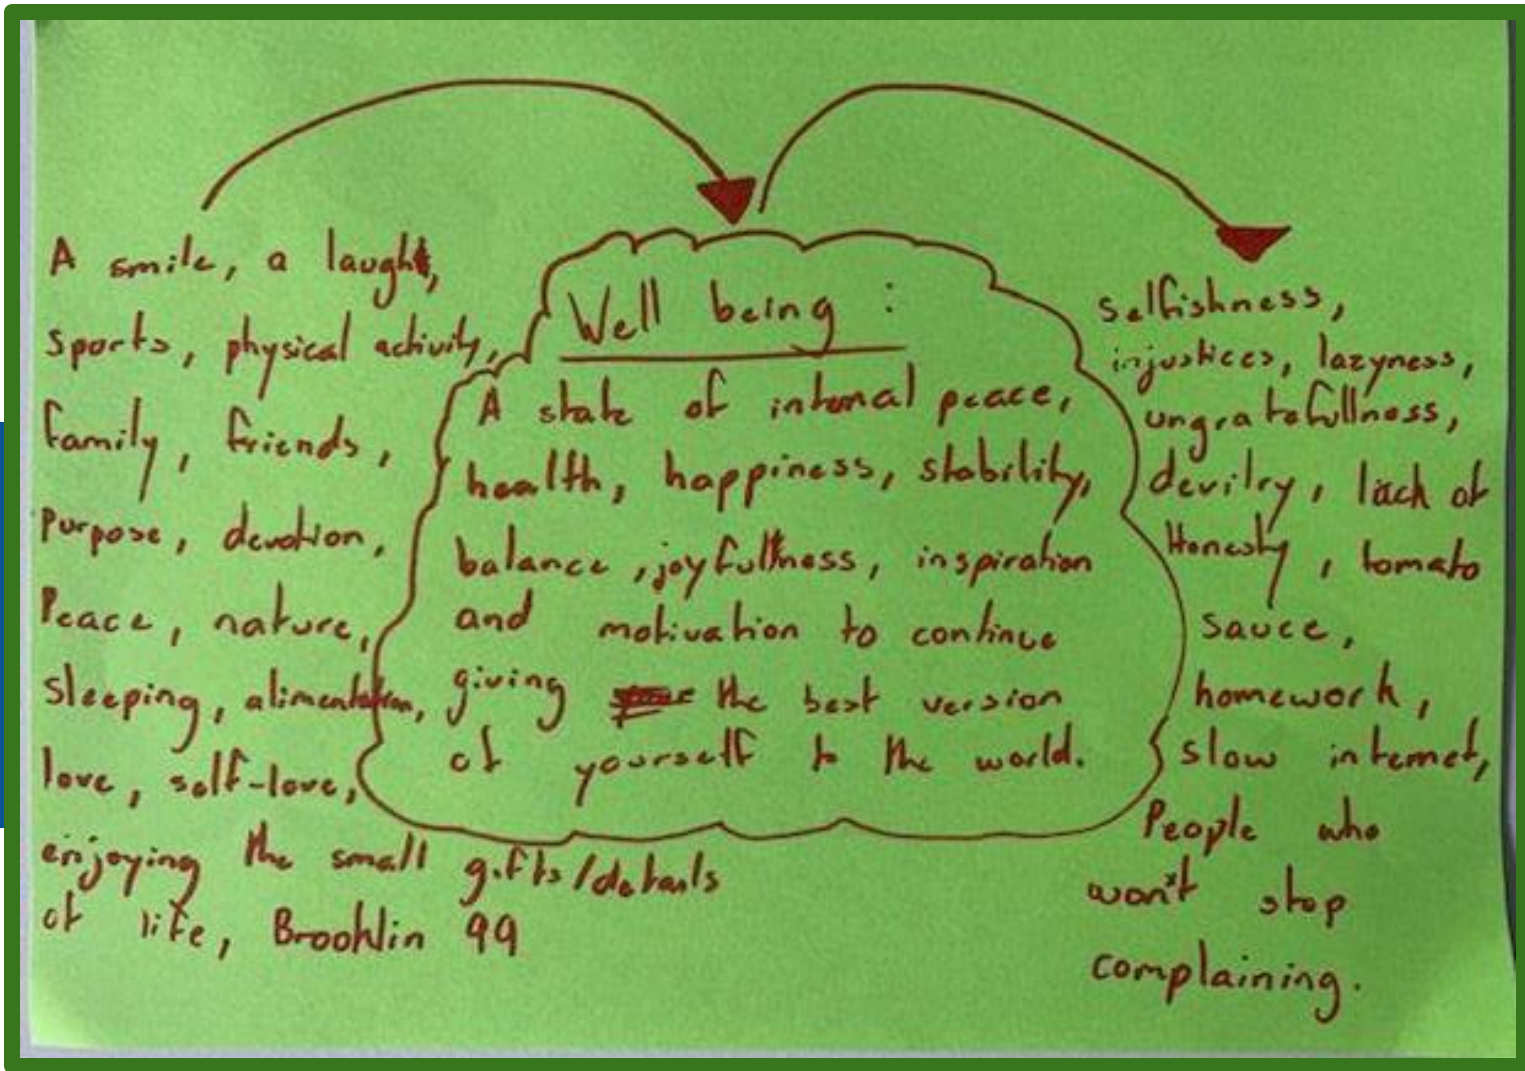 A smile, a laugh,
sports, physical activity,
family, friends,
purpose, devotion,
Peace, nature,
sleeping, alimentation,
love, self-love,
enjoying the small gifts/details
of life, Brooklin 99
Well being :
A state of internal peace,
health, happiness, stability,
balance, joyfullness, inspiration
and motivation to continue
giving the best version
of yourself to the world.
selfishness,
injustices, lazyness,
ungratefullness,
devilry, lack of
Honesty, tomato
sauce,
homework,
slow internet,
People who
won't stop
complaining.